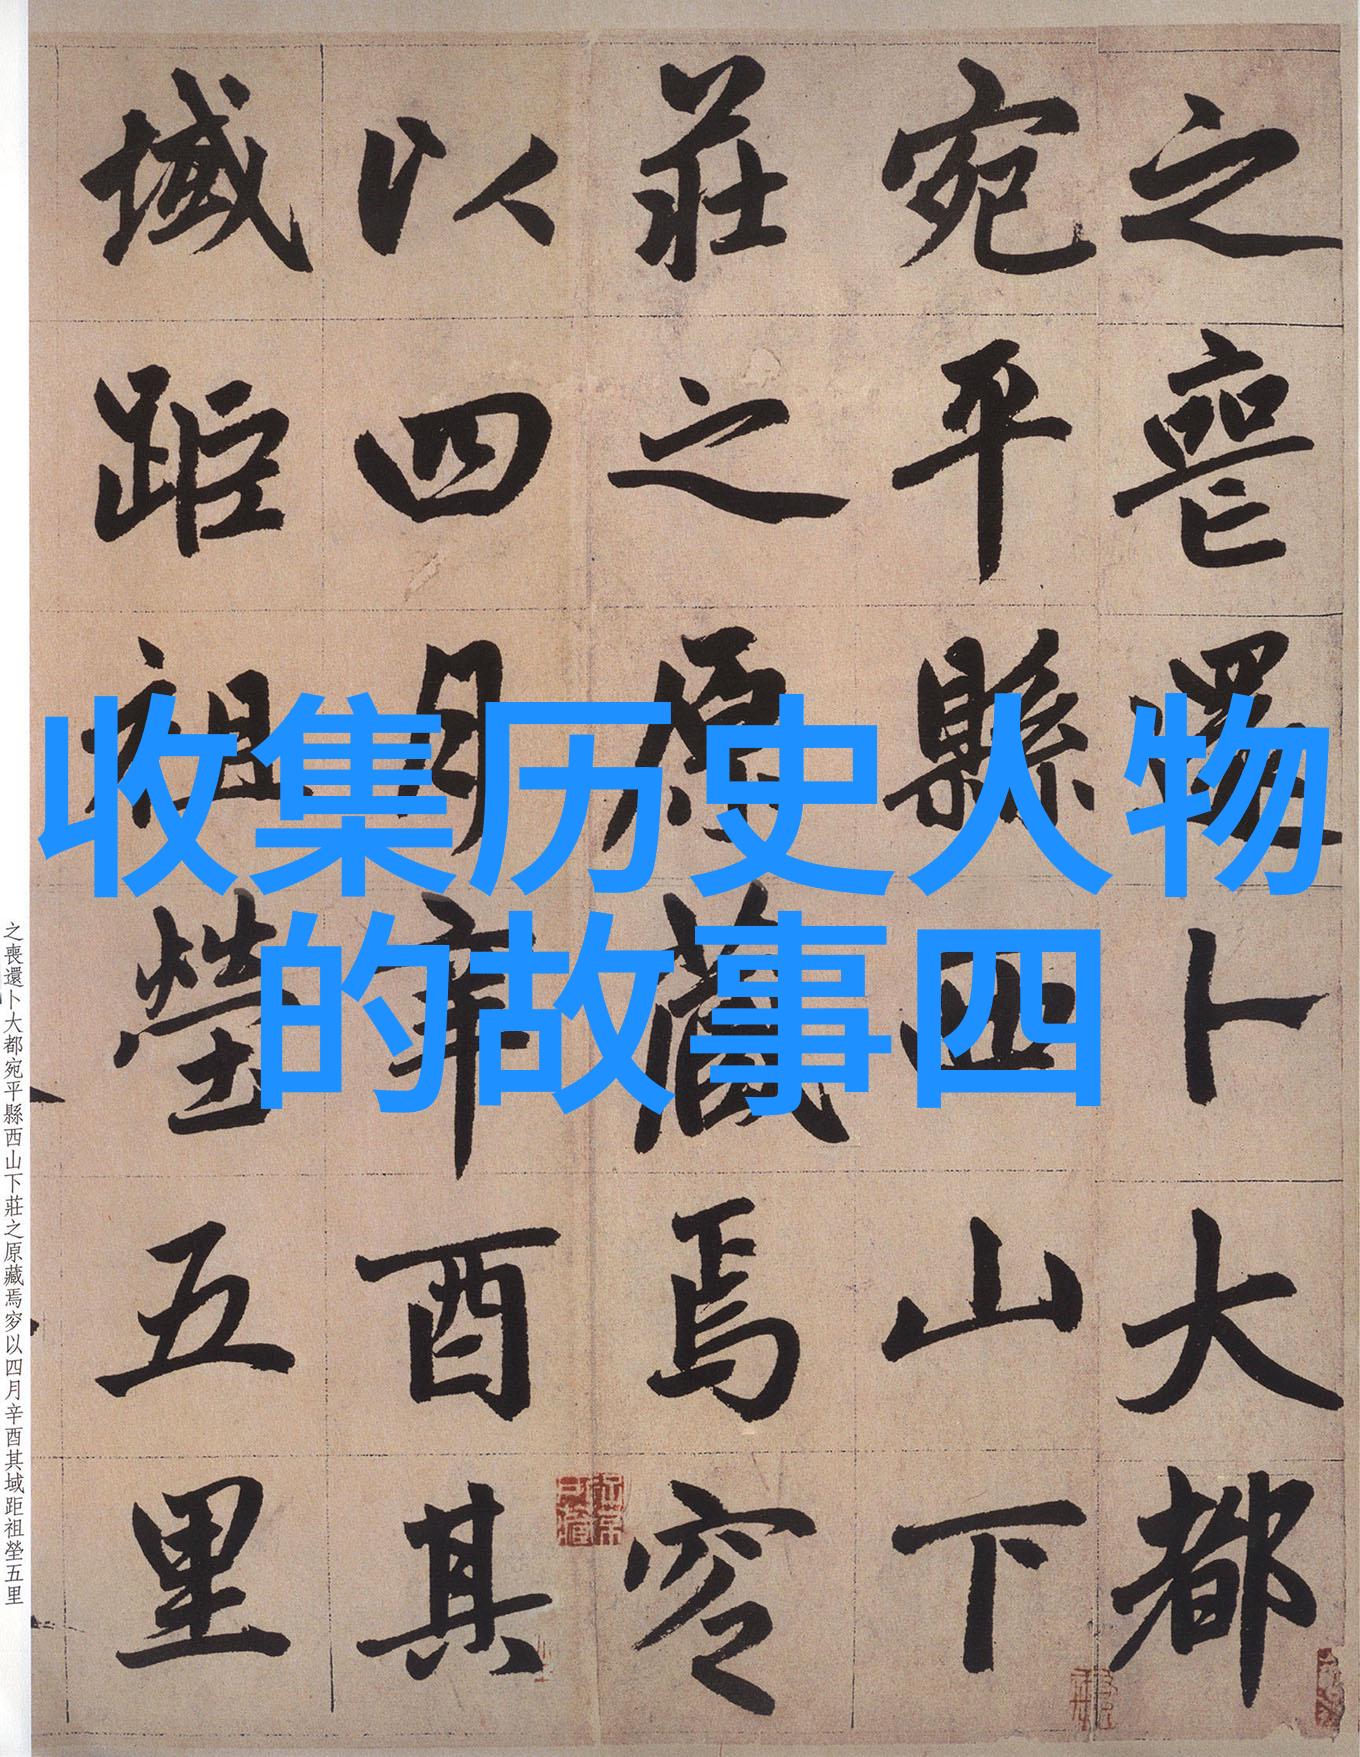 收集历史人物
的故事四
之喪還卜大都
宛平縣西山下
莊之原藏焉穸
以四月辛酉其
域距祖塋五里
之喪還卜大都宛平縣西山下莊之原藏焉穸以四月辛酉其域距祖塋五里